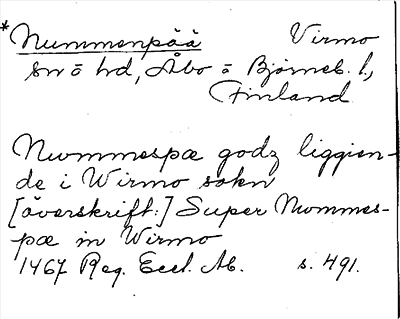 *Nummenpää Virmo
sn o hd, Åbo o Björneb. l.,
Finland
Nummespæ godz liggien-
de i Wirmo sokn
[överskrift:] Super Nummes-
pæ in Wirmo
1467 Reg. Eccl. Ab. s. 491.